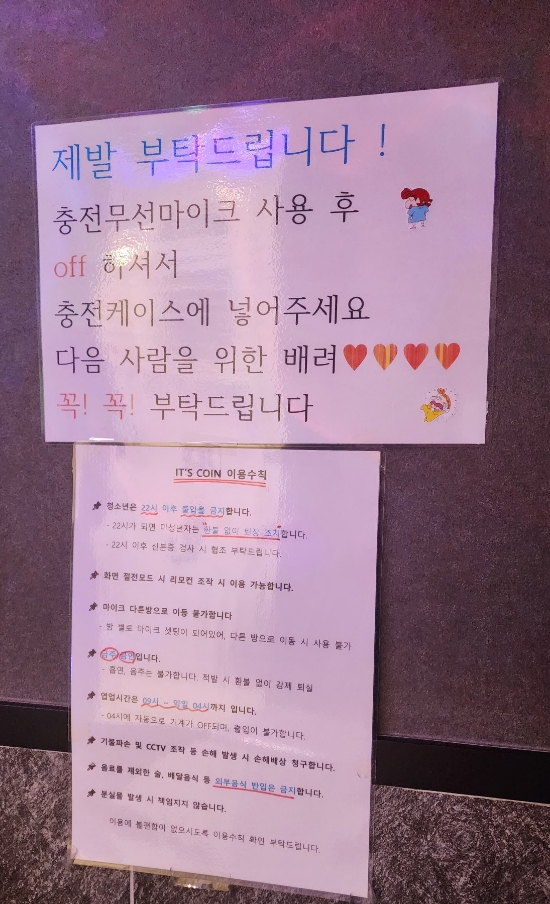 제발 부탁드립니다 !
충전무선마이크 사용 후
off 하셔서
충전케이스에 넣어주세요
다음 사람을 위한 배려♥♥♥♥
꼭! 꼭! 부탁드립니다
IT'S COIN 이용수칙
청소년은 22시 이후 출입을 금지합니다.
- 22시가 되면 미성년자는 "환불 없이 퇴장 조치"합니다.
- 22시 이후 신분증 검사 시 협조 부탁드립니다.
화면 절전모드 시 리모컨 조작 시 이용 가능합니다.
마이크 다른방으로 이동 불가합니다
- 방 별로 마이크 셋팅이 되어있어, 다른 방으로 이동 시 사용 불가
금주 금연입니다.
- 흡연, 음주는 불가합니다. 적발 시 환불 없이 강제 퇴실
영업시간은 09시 - 익일 04시까지 입니다.
- 04시에 자동으로 기계가 OFF되며, 연장이 불가합니다.
기물파손 및 CCTV 조작 등 손해 발생 시 손해배상 청구합니다.
음료를 제외한 술, 배달음식 등 외부음식 반입은 금지합니다.
분실물 발생 시 책임지지 않습니다.
이용에 불편함이 없으시도록 이용수칙 확인 부탁드립니다.